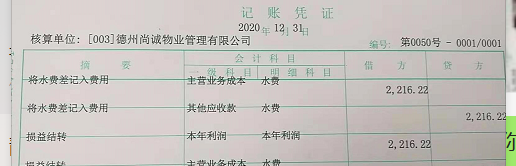 记 账 凭 证
2020 年 12 月 31 日
核算单位: [003]德州尚诚物业管理有限公司 编号: 第0050号 - 0001/0001
摘 要 会 计 科 目 借 方 贷 方
一 级 科 目 明 细 科 目
将水费差记入费用 主营业务成本 水费 2,216.22
将水费差记入费用 其他应收款 水费 2,216.22
损益结转 本年利润 本年利润 2,216.22
损益结转 主营业务成本 水费
你